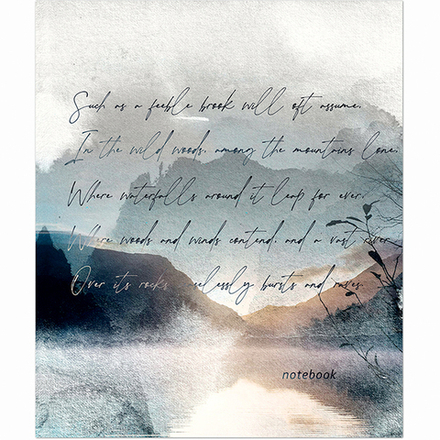 Such as a feeble brook will oft assume.
In the wild woods. among the mountains lone.
Where waterfalls around it leap for ever.
Where woods and winds contend. and a vast river
Over its rocks ceaselessly bursts and raves.
notebook